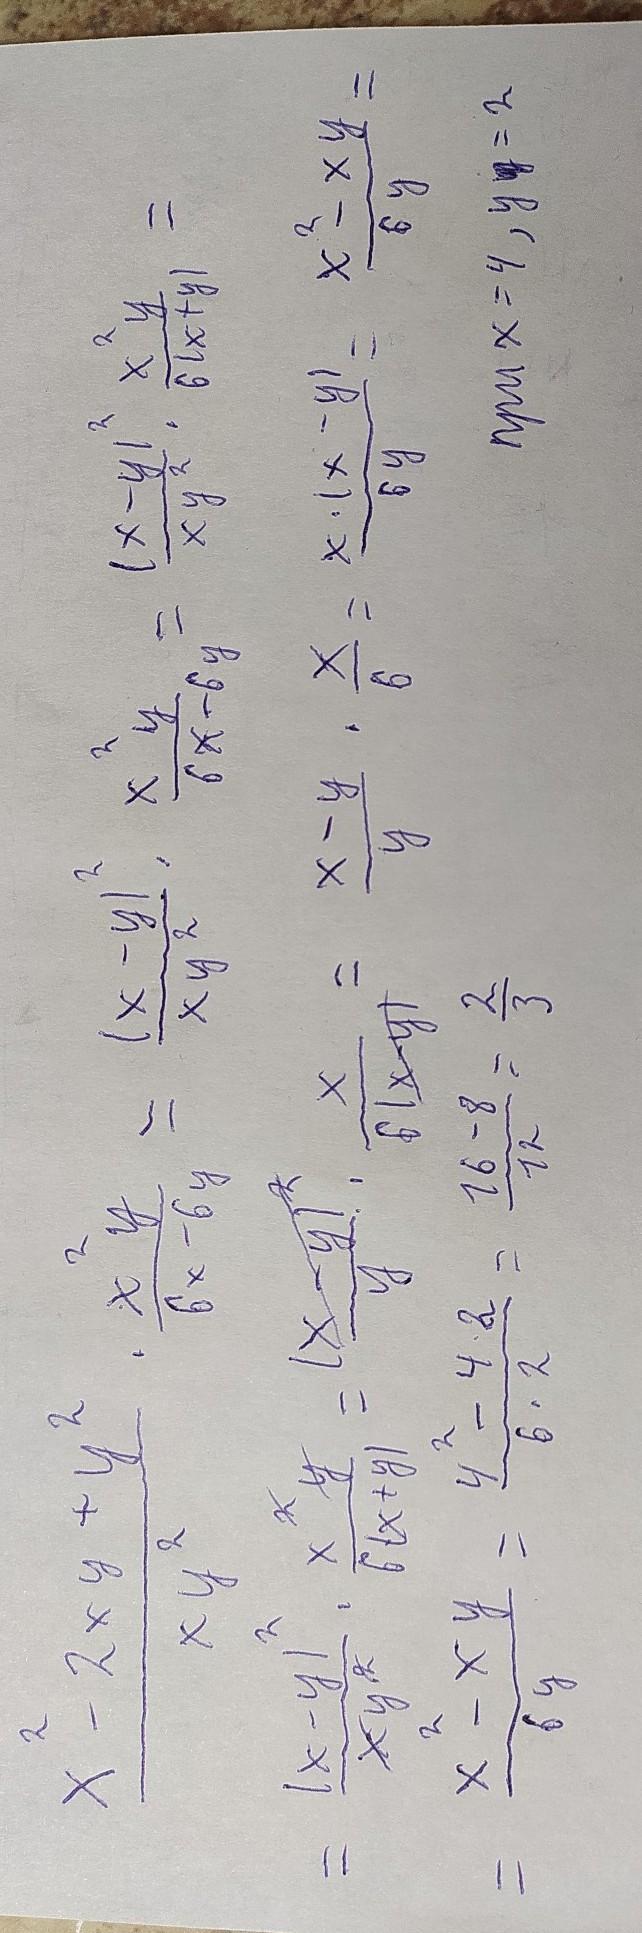 (x² - 2xy + y²)/(xy²) · (x²y)/(6x - 6y) = ((x - y)²)/(xy²) · (x²y)/(6x - 6y) = ((x - y)²)/(xy²) · (x²y)/(6(x + y)) =
= ((x - y)²)/(xy²) · (x²y)/(6(x + y)) = ((x - y)²)/y · x/(6(x - y)) = (x - y)/y · x/6 = (x · (x - y))/(6y) = (x² - xy)/(6y) =
= (x² - xy)/(6y) = (4² - 4·2)/(6·2) = (16 - 8)/12 = 2/3 при x = 4, y = 2